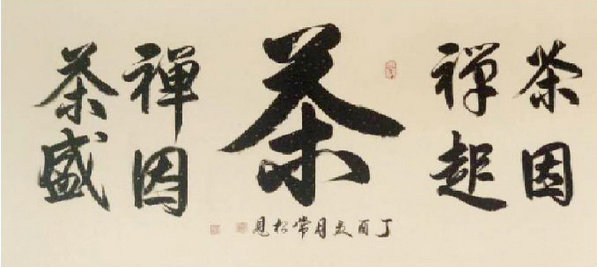 茶因
禅起
茶
禅因
茶盛
丁酉夏月常松